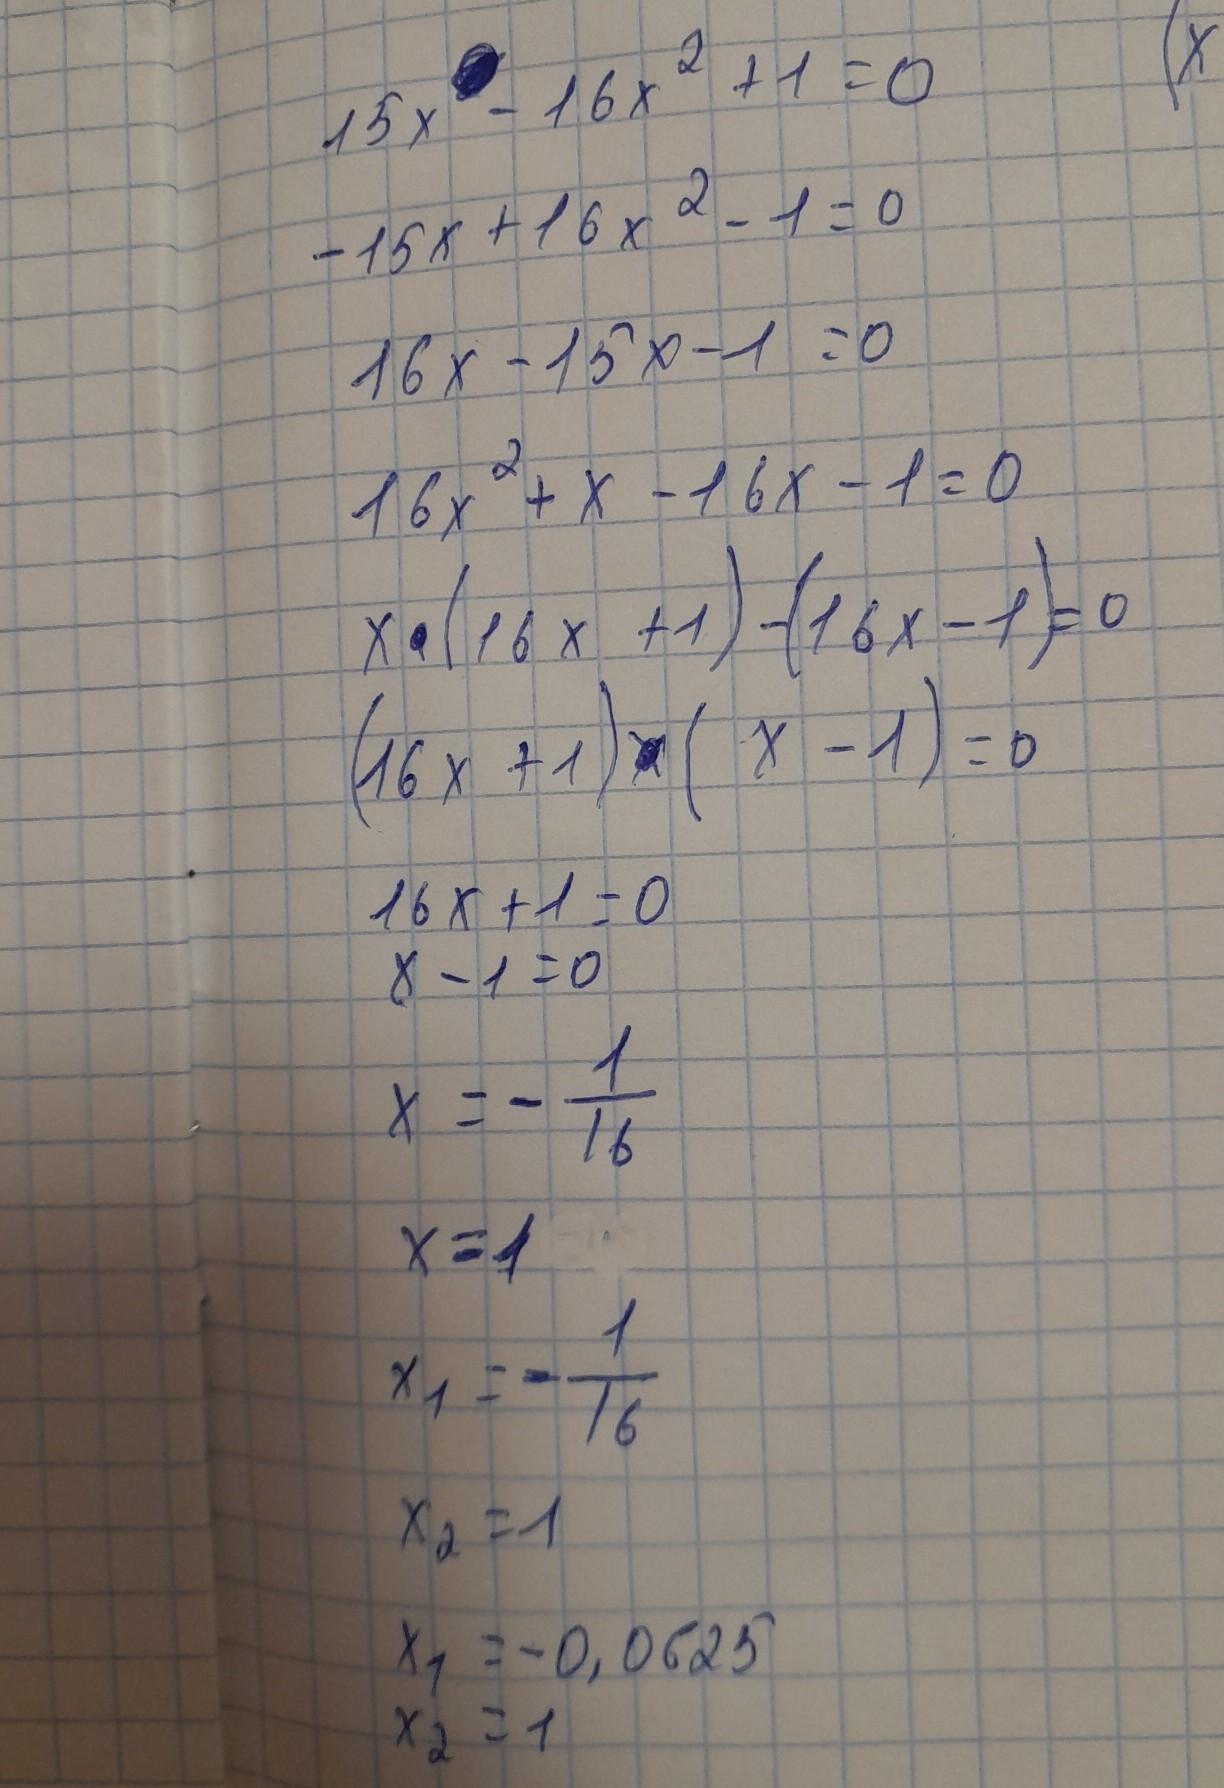 15x - 16x² + 1 = 0
(x
-15x + 16x² - 1 = 0
16x - 15x - 1 = 0
16x² + x - 16x - 1 = 0
x · (16x + 1) - (16x - 1) = 0
(16x + 1) · (x - 1) = 0
16x + 1 = 0
x - 1 = 0
x = - 1/16
x = 1
x₁ = - 1/16
x₂ = 1
x₁ = -0,0625
x₂ = 1